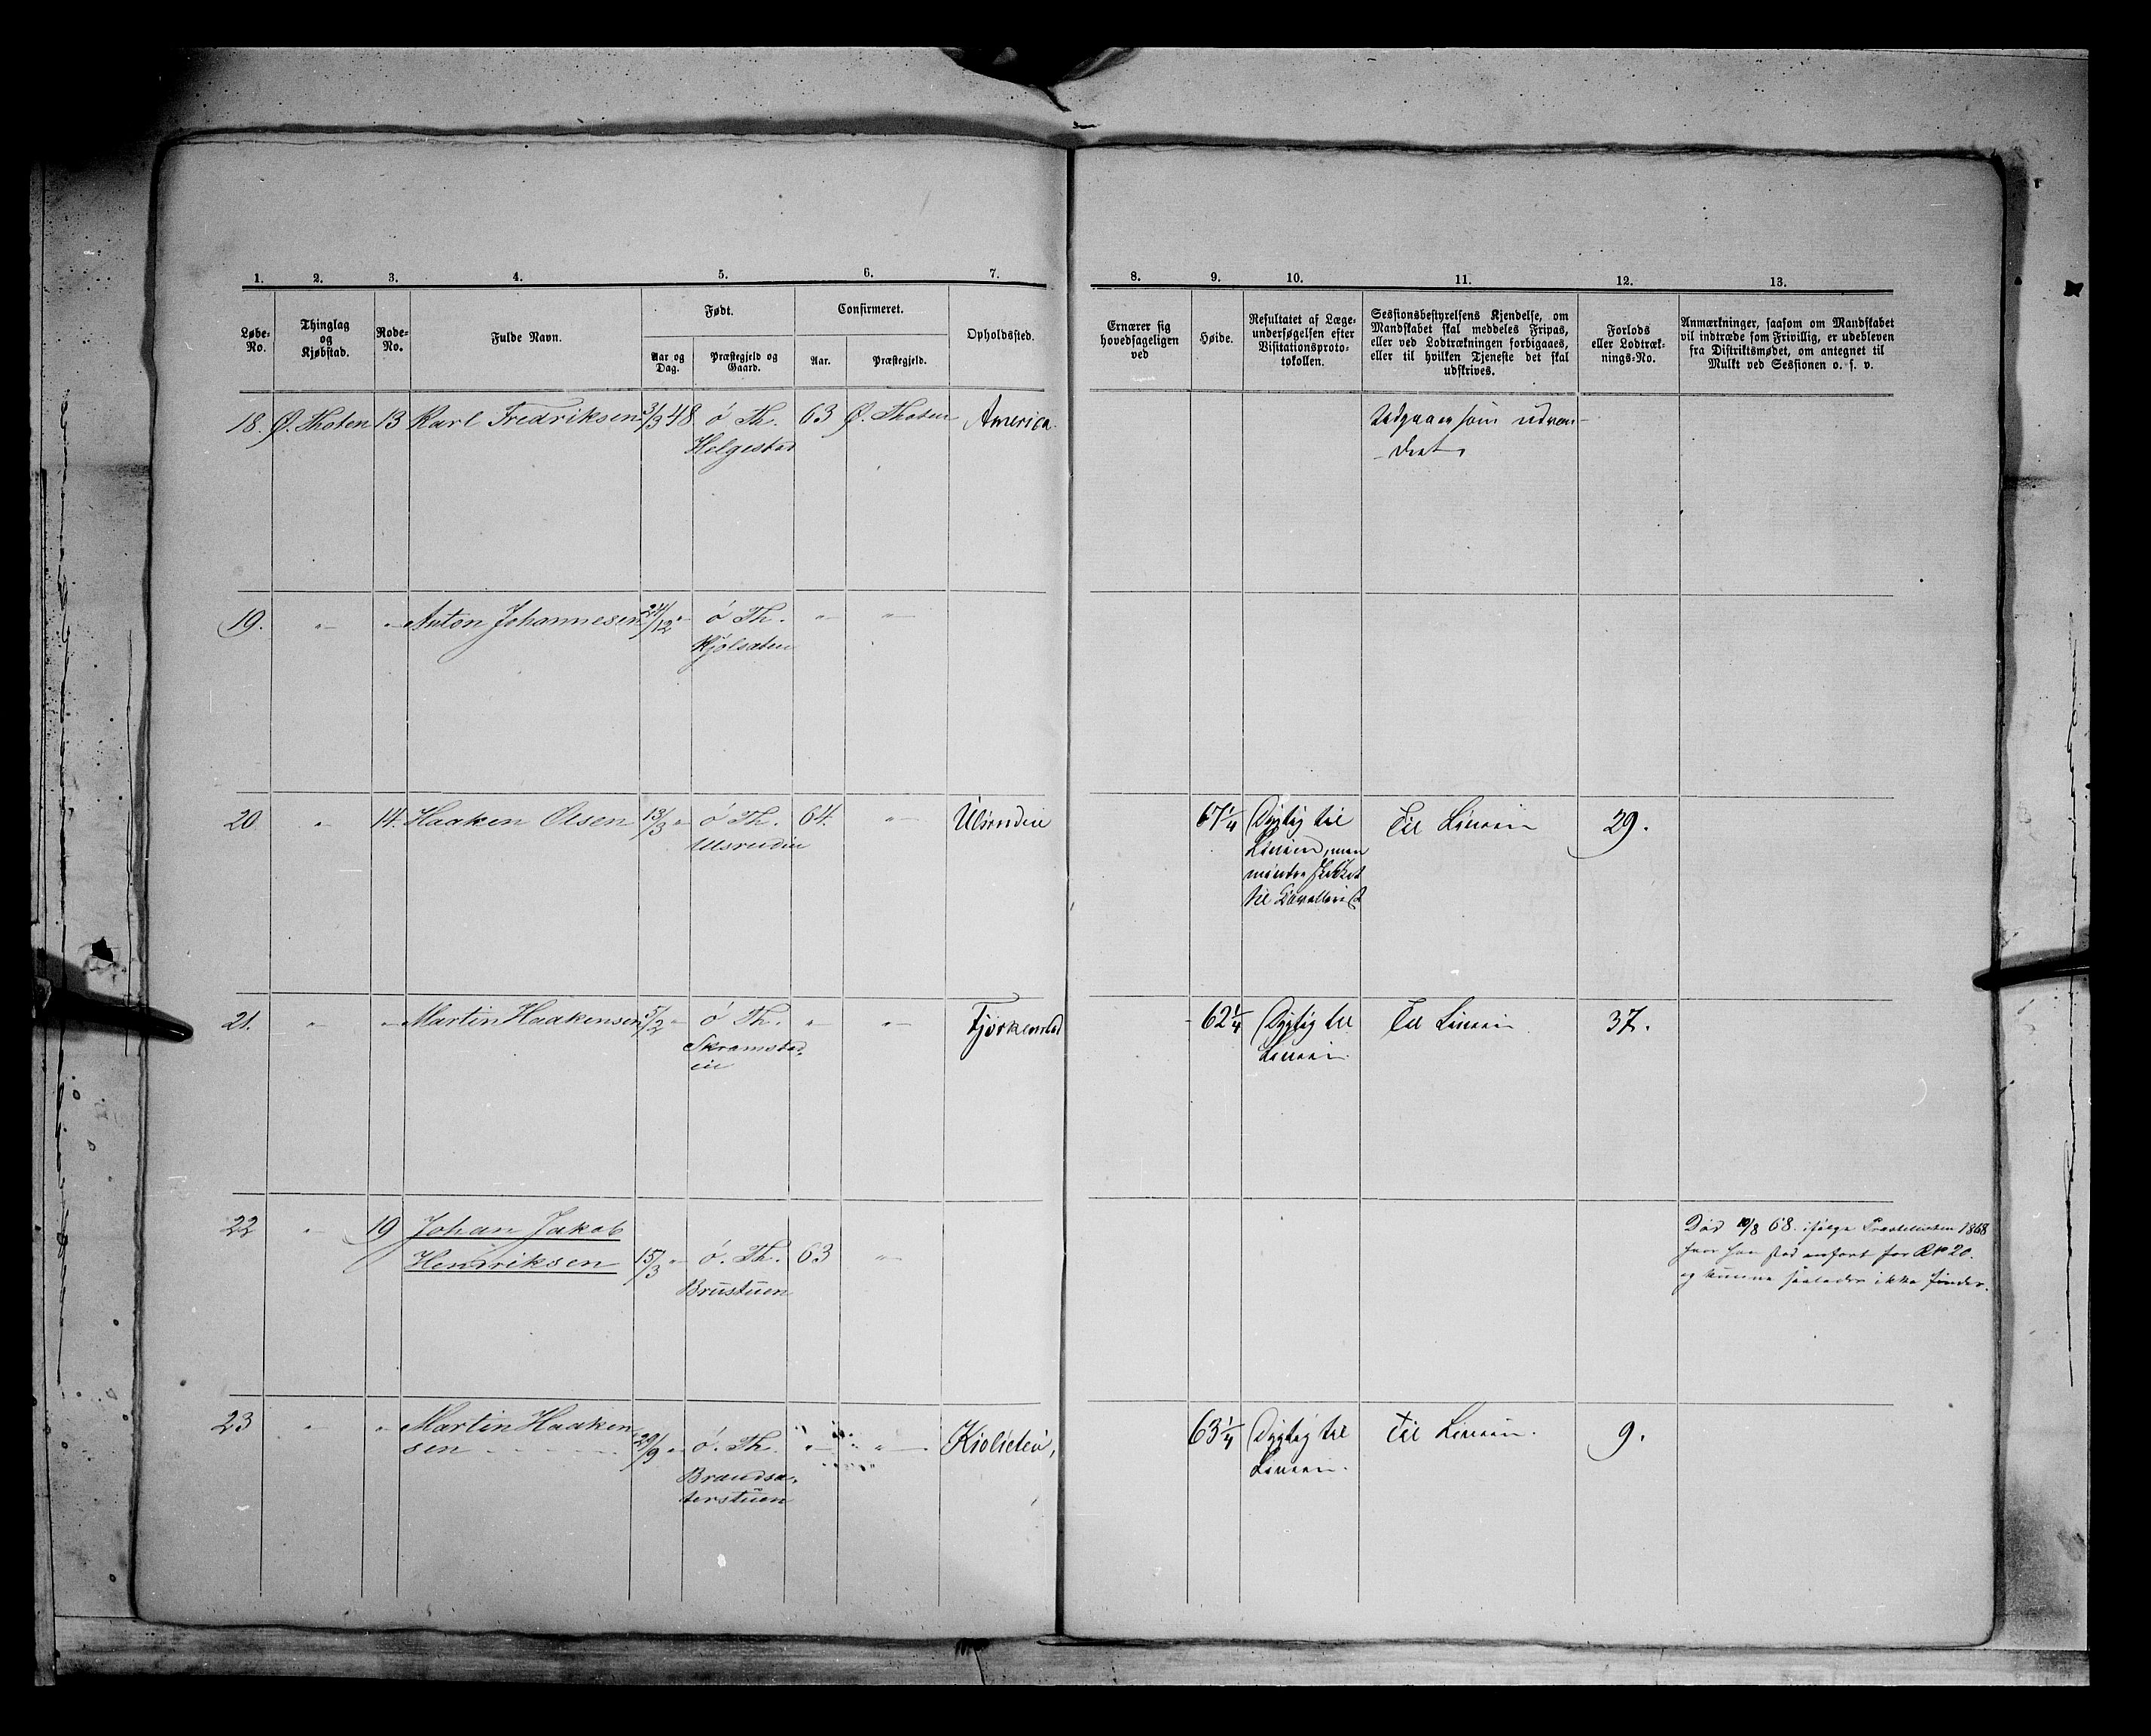 1. 2. 3. 4. 5. 6. 7. 8. 9. 10. 11. 12. 13.
Løbe-No.
Thinglag og Kjøbstad.
Rode-No.
Fulde Navn.
Født.
Aar og Dag.
Præstegjeld og Gaard.
Confirmeret.
Aar.
Præstegjeld.
Opholdssted.
Ernærer sig hovedsageligen ved
Høide.
Resultatet af Læge-
undersøgelsen efter
Visitationsproto-
tokollen.
Sessionsbestyrelsens Kjendelse, om
Mandskabet skal meddeles Fripas,
eller ved Lodtrækningen forbigaaes,
eller til hvilken Tjeneste det skal
udskrives.
Forlods
eller Lodtræk-
nings-No.
Anmærkninger, saasom om Mandskabet
vil indtræde som Frivillig, er udebleven
fra Distriktsmødet, om antegnet til
Mulkt ved Sessionen o. s. v.
18. Ø. Thoten 13 Karl Fredriksen 3/3 48 ø Th. 63 Ø. Thoten America
Helgestad
Udgaaer som udvan-
dret
19. " " Anton Johannesen 24/12 " ø Th. " "
Kjølsæten
20 " 14. Haaken Olsen 13/3 " ø Th. 64. " Ulsrudei 67 1/4 Dygtig til Til Linien 29.
Ulsrudei Linien, men
mindre skikket
til Cavallerist
21. " " Martin Haakensen 5/2 " ø Th. " " Fjørkenstad 62 1/4 Dygtig til Til Linien 37.
Skramstad- Linien.
ei
22 " 19 Johan Jakob Død 10/8 68. ifølge Præstelisten 1868
Henriksen 15/3 " ø. Th. 63 " hvor han stod anført for R No 20.
Brustuen og kunne saaledes ikke findes.
23 " " Martin Haaken
sen 29/9 " ø. Th. " " 63 1/4 Dygtig til Til Linien. 9.
Brandsæ- Linien.
terstuen